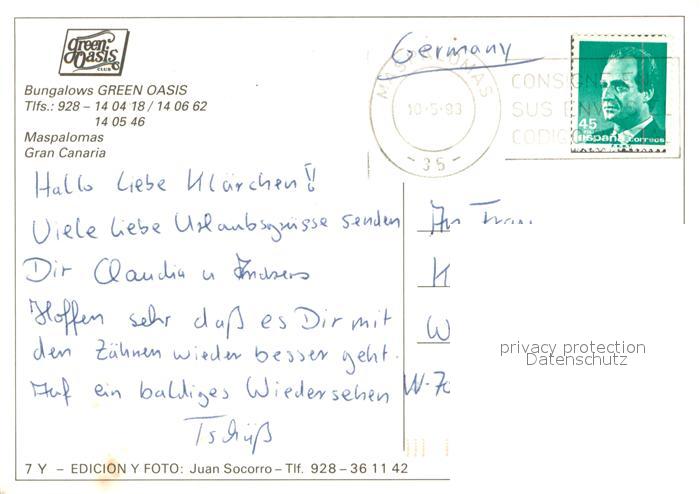 Green
Oasis
CLUB
Bungalows GREEN OASIS
Tlfs.: 928 – 14 04 18 / 14 06 62
14 05 46
Maspalomas
Gran Canaria
Germany
MASPALOMAS
10-5-93
- 35 -
CONSIGNE
SUS ENV
CODIGO
45
España correos
Hallo liebe Klärchen!!
Viele liebe Urlaubsgrüsse senden
Dir Claudia u Andreas
Hoffen sehr daß es Dir mit
den Zähnen wieder besser geht.
Auf ein baldiges Wiedersehen
Tschüß
An Frau
K
W
W-70
privacy protection
Datenschutz
7 Y – EDICION Y FOTO: Juan Socorro – Tlf. 928 – 36 11 42